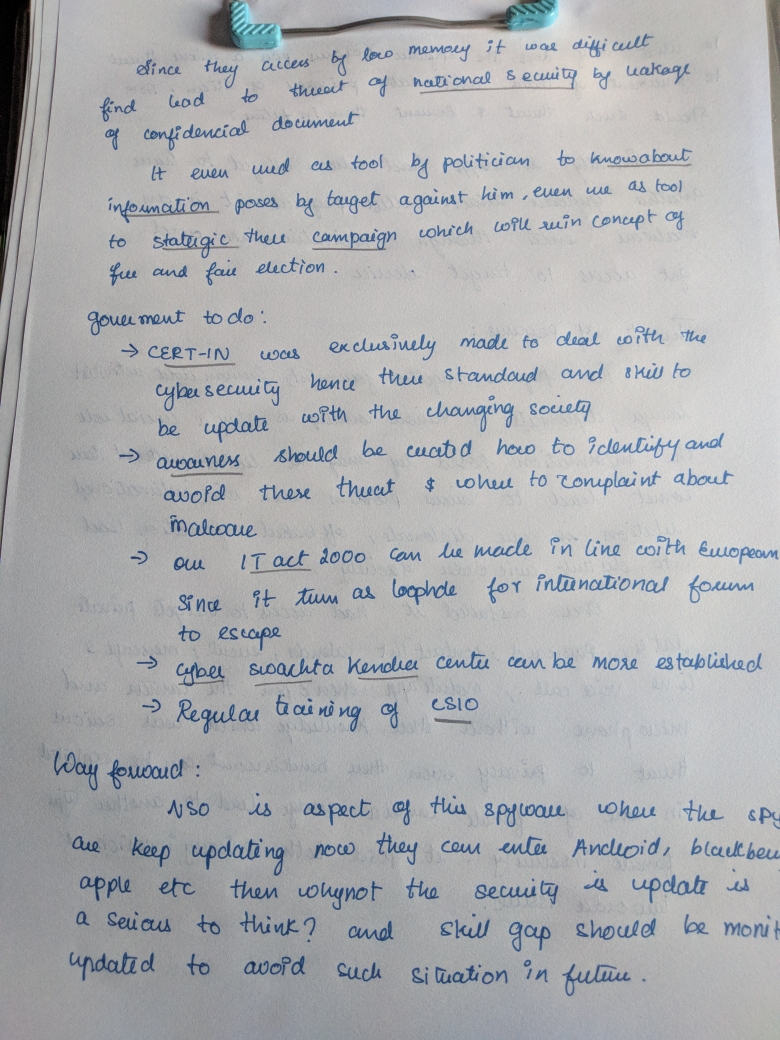 Since they access by low memory it was difficult
find lead to threat of national secuity by leakage
of confidencial document
It even used as tool by politician to know about
information poses by target against him, even use as tool
to stategic their campaign which will ruin concept of
free and fair election.
goverment to do:
→ CERT-IN was exclusively made to deal with the
cyber security hence their standard and skill to
be update with the changing society
→ awarness should be created how to identify and
avoid these threat & where to complaint about
malware
→ our IT act 2000 can be made in line with European
since it turn as loophole for international forum
to escape
→ cyber swachta Kendra centre can be more established
→ Regular training of CSIO
Way forward:
NSO is aspect of this spyware where the spy
are keep updating now they can enter Android, blackber
apple etc then whynot the security is update is
a serious to think? and skill gap should be monit
updated to avoid such situation in future.